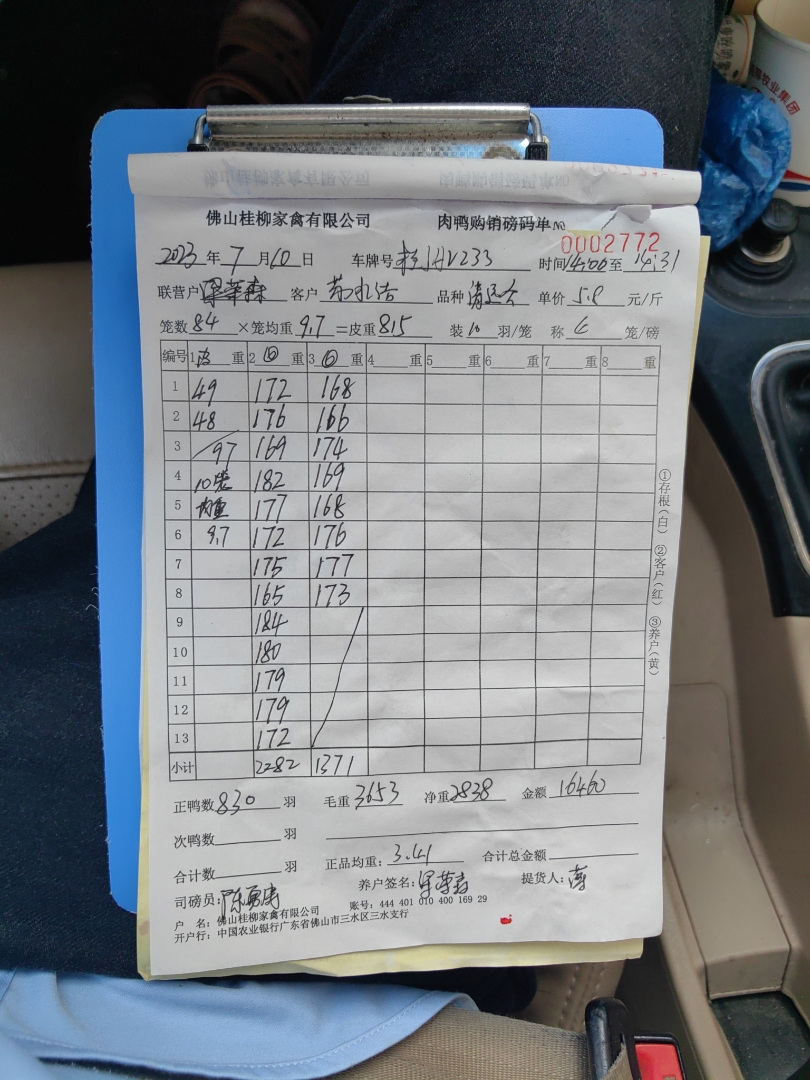 佛山桂柳家禽有限公司 肉鸭购销磅码单 №
0002772
2023 年 7 月 10 日 车牌号 V233 时间 14:00 至 14:31
联营户 客户 品种 单价 5.8 元/斤
笼数 84 ×笼均重 9.7 =皮重 815 装 10 羽/笼 称 笼/磅
编号 1 皮 重 2 毛 重 3 毛 重 4 重 5 重 6 重 7 重 8 重
1 49 172 168
2 48 176 166
3 97 169 174
4 10 182 169
5 177 168
6 9.7 172 176
7 175 177
8 165 173
9 184
10 180
11 179
12 179
13 172
小计 2282 1371
正鸭数 830 羽 毛重 3653 净重 2838 金额 16460
次鸭数 羽
合计数 羽 正品均重: 3.41 合计总金额
司磅员: 养户签名: 提货人:
户 名: 佛山桂柳家禽有限公司 账号: 444 401 010 400 169 29
开户行: 中国农业银行广东省佛山市三水区三水支行
①存根(白) ②客户(红) ③养户(黄)